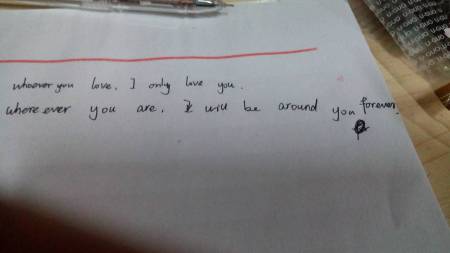 whoever you love. I only love you.
where ever you are. I will be around you forever.